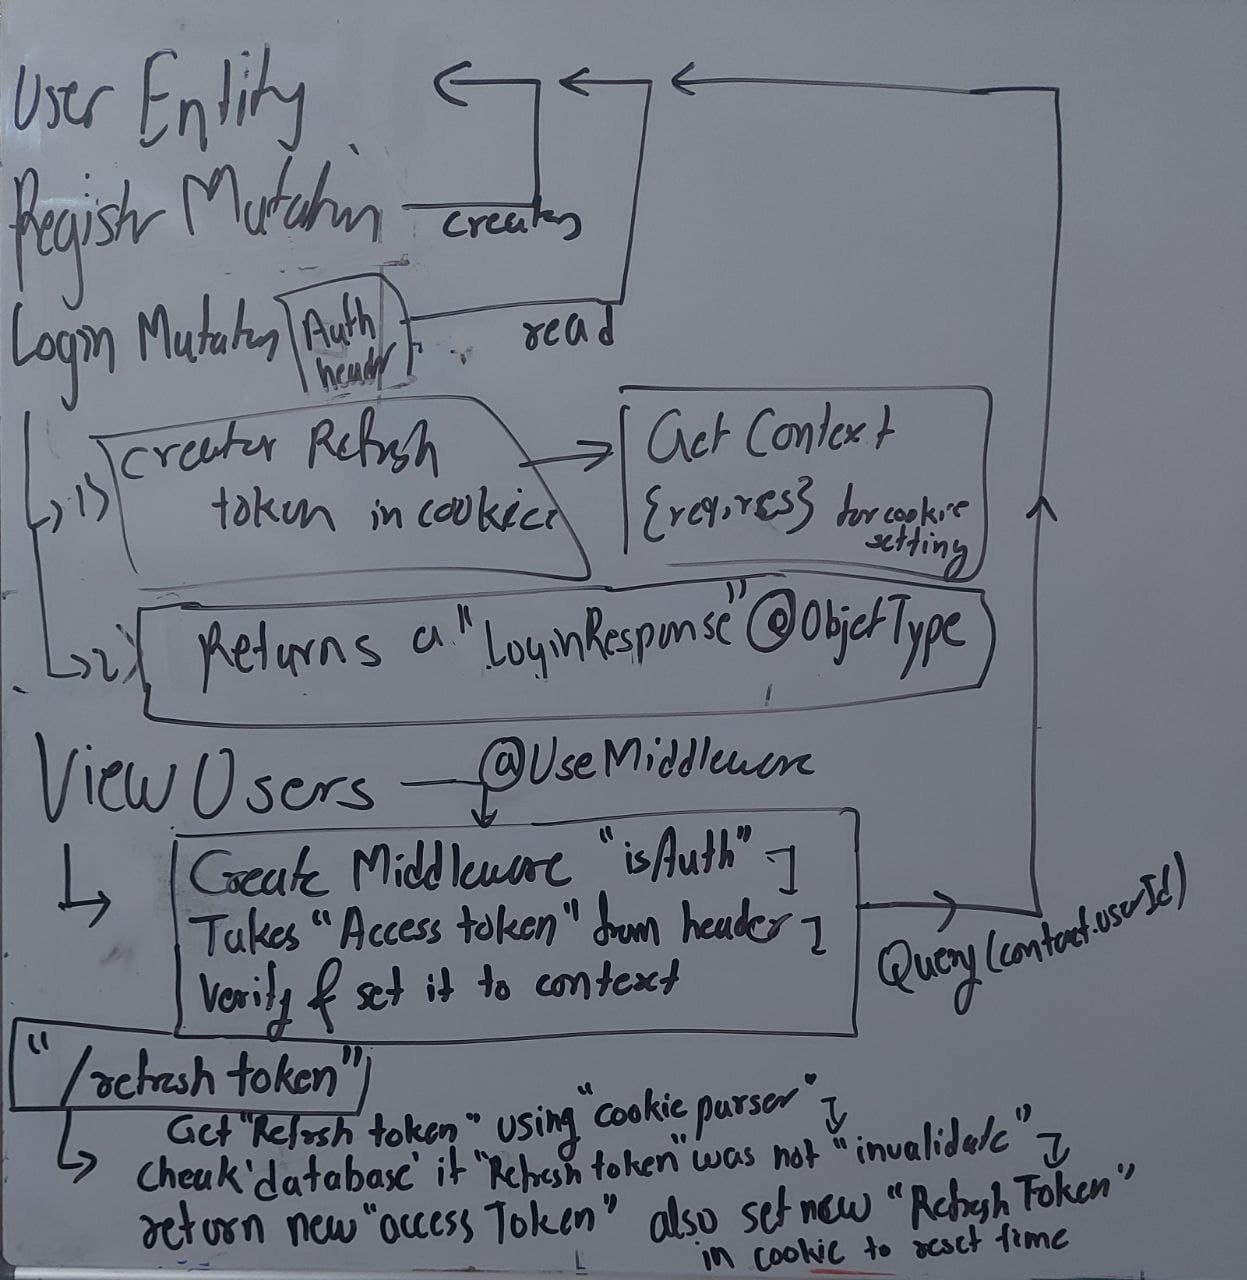 User Entity
Register Mutation
creates
Login Mutation
Auth
header
read
1) Creater Refresh
token in cookies
Get Context
{req, res} for cookie
setting
2) Returns a "LoginResponse" @ObjectType
View Users
@UseMiddleware
Create Middleware "isAuth"
Takes "Access token" from header
Verify & set it to context
Query(context.userId)
"/refresh token"
Get "Refresh token" using "cookie parser"
check 'database' if "Refresh token" was not "invalidate"
return new "access Token" also set new "Refresh Token"
in cookie to reset time